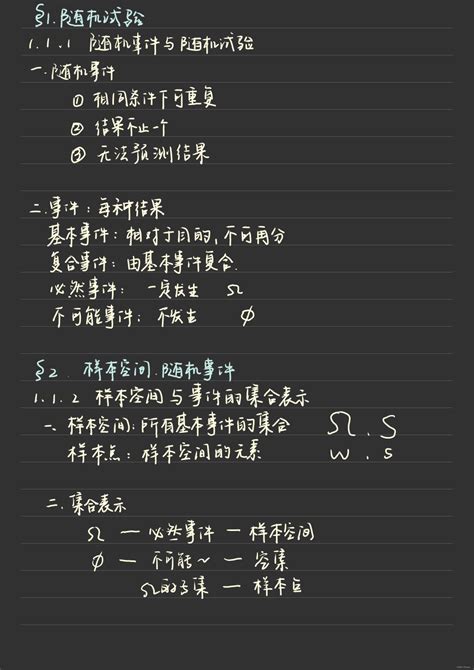 §1.随机试验
1.1.1 随机事件与随机试验
一.随机事件
① 相同条件下可重复
② 结果不止一个
③ 无法预测结果
二.事件:每种结果
基本事件:相对于目的,不可再分
复合事件:由基本事件复合.
必然事件: 一定发生 Ω
不可能事件:不发生 Φ
§2. 样本空间.随机事件
1.1.2 样本空间与事件的集合表示
一、样本空间:所有基本事件的集合 Ω.S
样本点:样本空间的元素 w.s
二.集合表示
Ω — 必然事件 — 样本空间
Φ — 不可能~ — 空集
Ω的子集 — 样本点